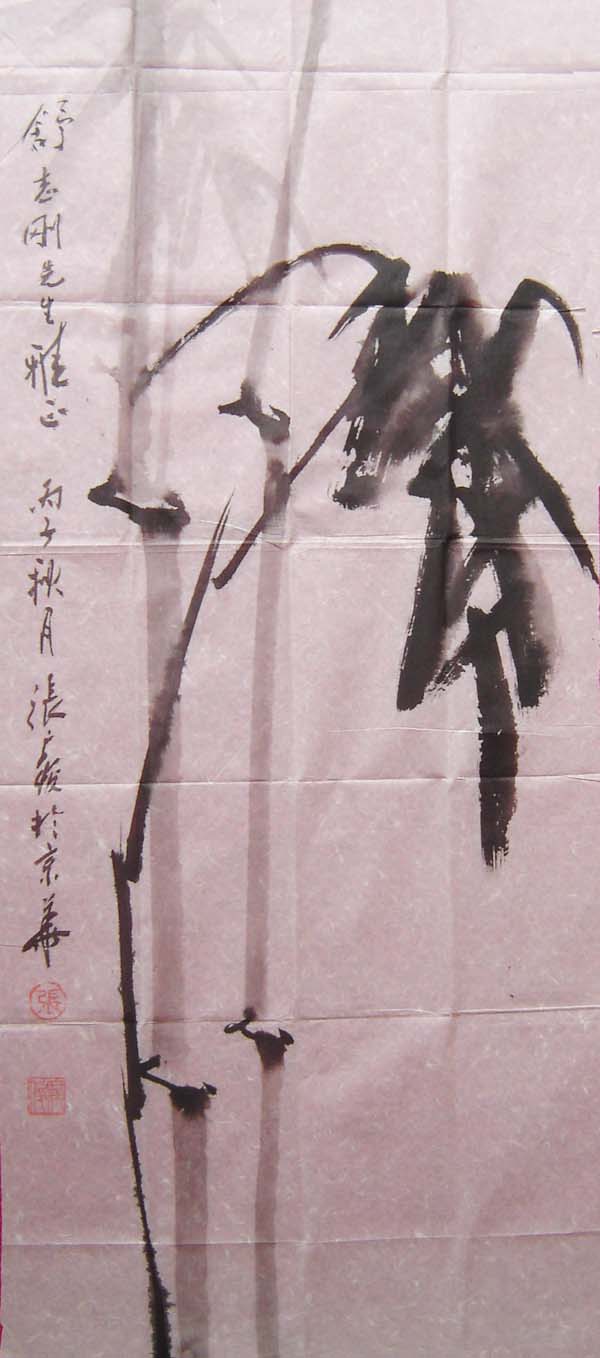 舒志刚先生雅正 丙子秋月 張廣於京華
張